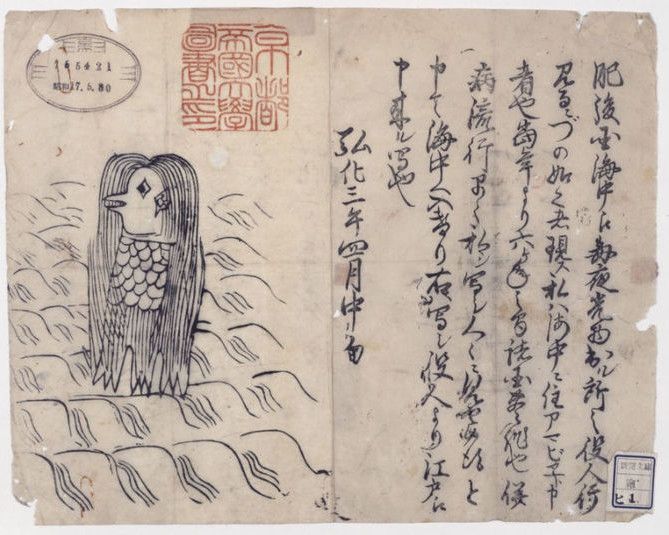 肥後国海中え毎夜光物出ル所之役人行
見るニづの如之者現ス私ハ海中ニ住アマビヱト申
者也當年より六ヶ年之間諸国豊作也併
病流行早々私ヲ写シ人々ニ見セ候得と
申て海中へ入けり右写シ役人より江戸え
申来ル写也
弘化三年四月中旬
京都
帝國大學
圖書之印
165421
昭和17.5.30